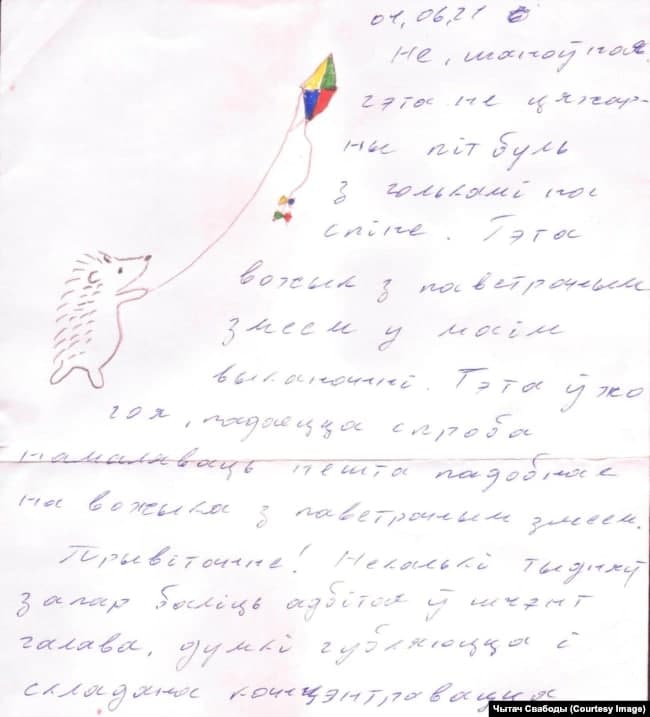 01,06,21
Не, шаноўная,
гэта не цяжар-
ны пітбуль
з голькамі на
спіне. Гэта
вожык з паветраным
змеем у маім
выкананні. Гэта ўжо
-ая, падаецца спроба
намаляваць нешта падобнае
на вожыка з паветраным змеем.
Прывітанне! Некалькі тыдняў
запар баліць адбітая ў
галава, думкі губляюцца і
складана канцэнтравацца
Чытач Свабоды (Courtesy Image)